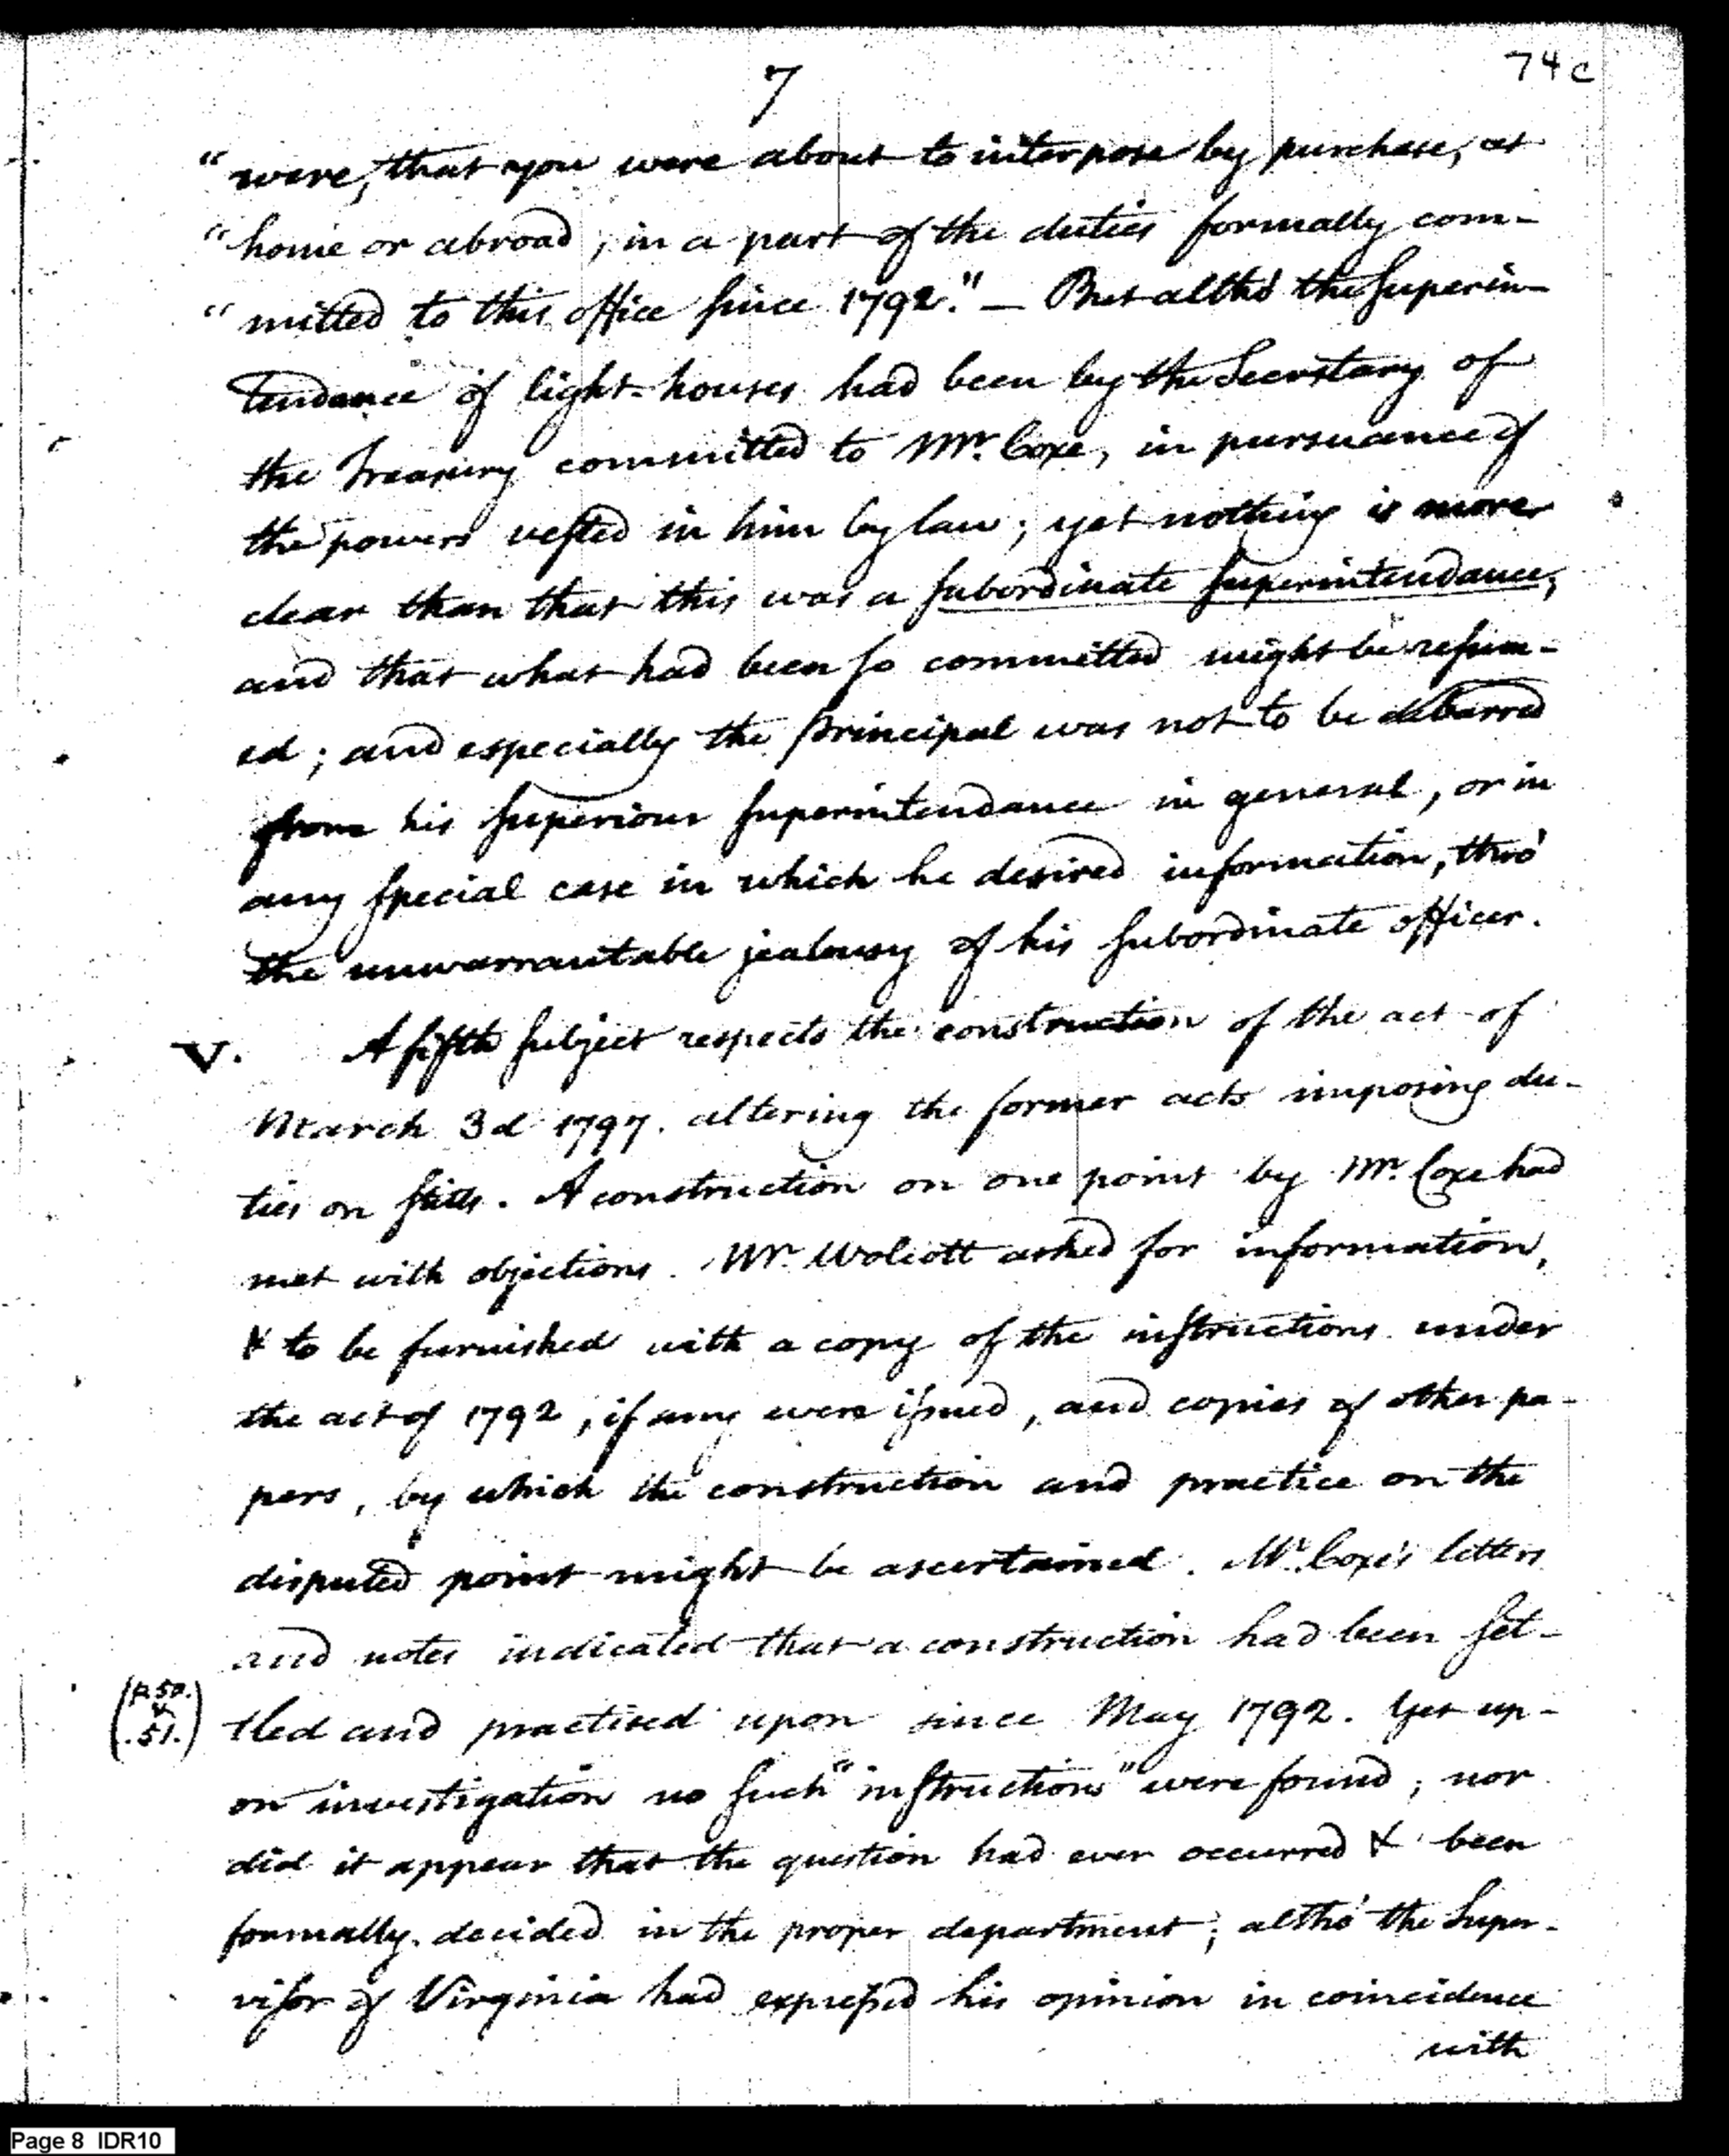 7
74c
"were, that you were about to interpose by purchase, at
"home or abroad, in a part of the duties formally com-
"mitted to this office since 1792." — But altho' the Superin-
tendance of light-houses had been by the Secretary of
the Treasury committed to Mr. Coxe, in pursuance of
the powers vested in him by law; yet nothing is more
clear than that this was a subordinate superintendance,
and that what had been so committed might be resum-
ed; and especially the principal was not to be debarred
from his superiour superintendance in general, or in
any special case in which he desired information, thro'
the unwarrantable jealousy of his subordinate officer.
V. A fifth subject respects the construction of the act of
March 3d 1797. altering the former acts imposing du-
ties on stills. A construction on one point by Mr. Coxe had
met with objections. Mr. Wolcott asked for information,
& to be furnished with a copy of the instructions under
the act of 1792, if any were issued, and copies of other pa-
pers, by which the construction and practice on the
disputed point might be ascertained. Mr. Coxe's letters
and notes indicated that a construction had been set-
(p. 50.
&
. 51.)
tled and practised upon since May 1792. Yet up-
on investigation no such "instructions" were found; nor
did it appear that the question had ever occurred & been
formally decided in the proper department; altho' the Super-
visor of Virginia had expressed his opinion in coincidence
with
Page 8 IDR10